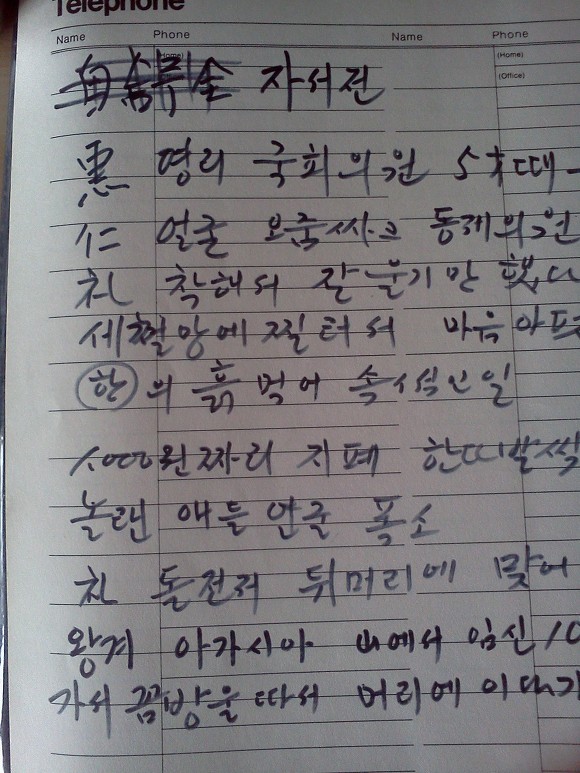 Telephone
Name Phone Name Phone
(Home) (Home)
(Office)
자서전
惠 영리 국회의원 5才때
仁 얼굴 오줌싸고 동네의원
礼 착해서 잘 울기만 했다
세 철망에 찔터서 마음아
한 의 흙 먹어 속석인일
1000원 짜리 지폐 한다발씩
놀랜 애들 얼굴 폭소
礼 돌전져 뒤머리에 맞어
왕겨 아가시아 에서 임신 10
가서 꼼방울 따서 머리에 이